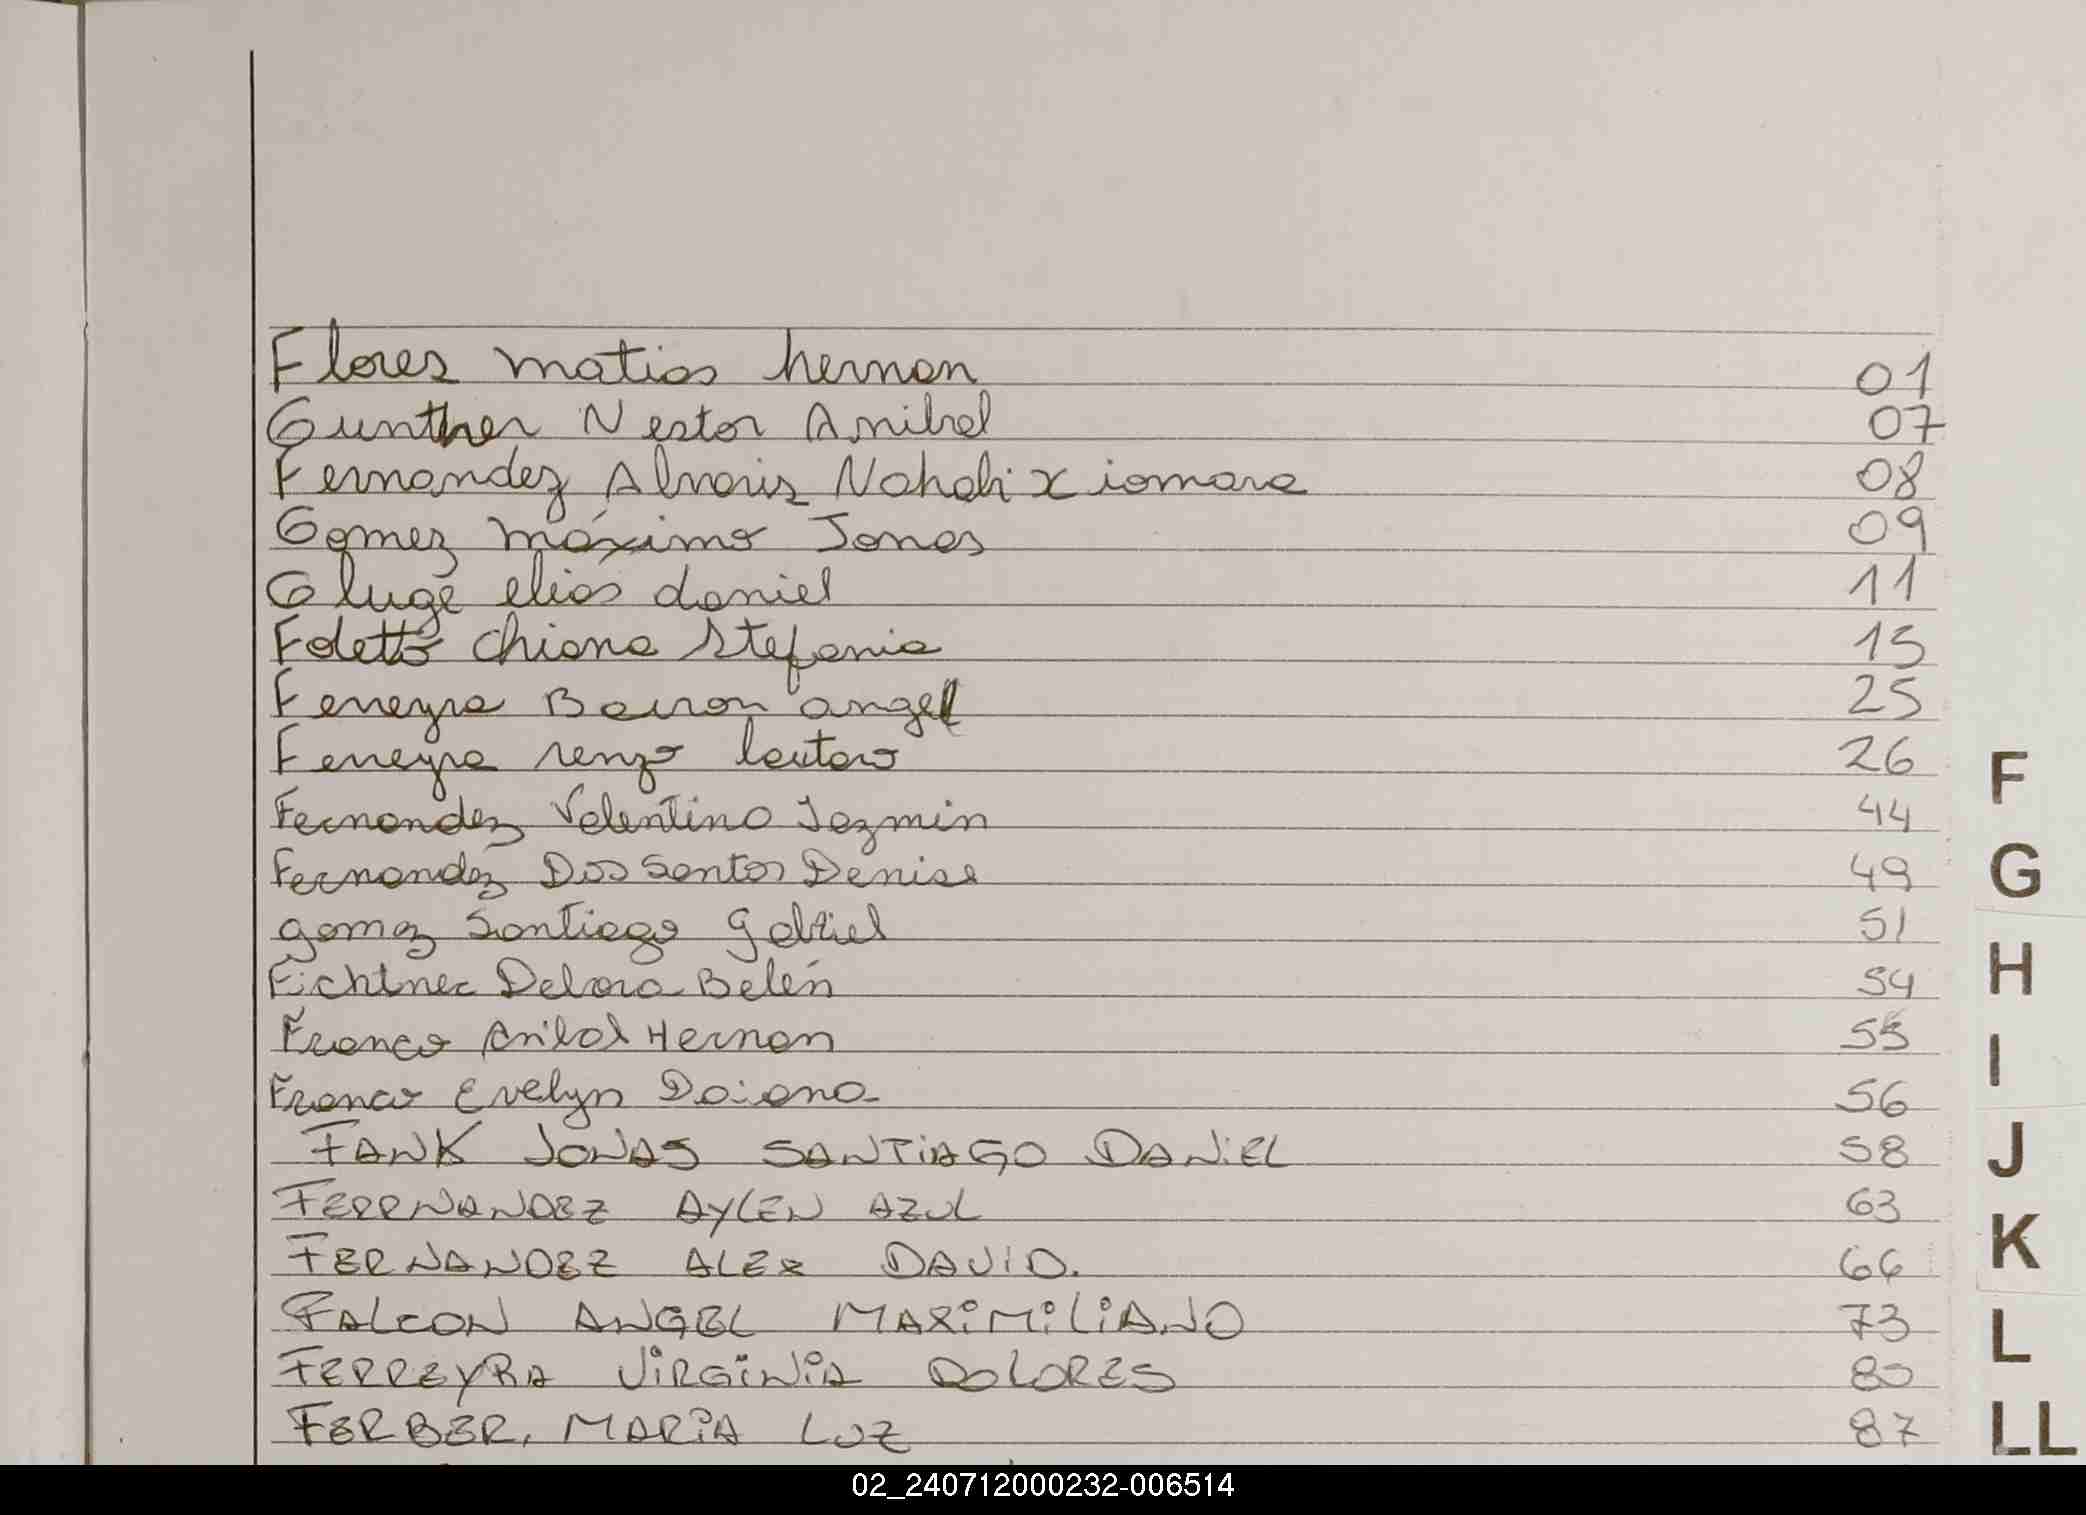 Flores Matias hernan 01
Gunther Nestor Anibal 07
Fernandez Alvariz Nahali Xiomara 08
Gomez Máximo Jonas 09
Gluge elias daniel 11
Foletto Chiana Stefania 15
Ferreyra Bairon angel 25
Ferreyra renzo lautaro 26
Fernandez Valentino Jazmin 44
Fernandez Dos Santos Denise 49
gomez Santiago Gabriel 51
Fichtner Debora Belén 54
Franco Anibal Hernan 55
Franco Evelyn Daiana 56
FANK JONAS SANTIAGO DANIEL 58
FERRNANDEZ AYLEN AZUL 63
FERNANDEZ ALEX DAVID. 66
FALCON ANGEL MAXIMILIANO 73
FERREYRA VIRGINIA DOLORES 80
FERBER, MARIA LUZ 87
F
G
H
I
J
K
L
LL
02_240712000232-006514